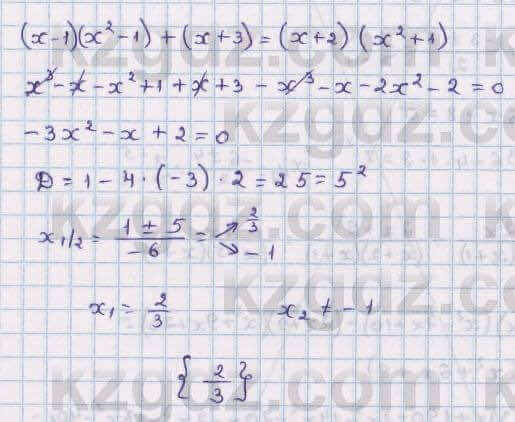 (x-1)(x²-1)+(x+3)=(x+2)(x²+1)
x³-x-x²+1+x+3-x³-x-2x²-2=0
-3x²-x+2=0
D=1-4·(-3)·2=25=5²
x₁/₂=(1±5)/-6= 2/3
-1
x₁=2/3 x₂≠-1
{2/3}
kzgdz.com